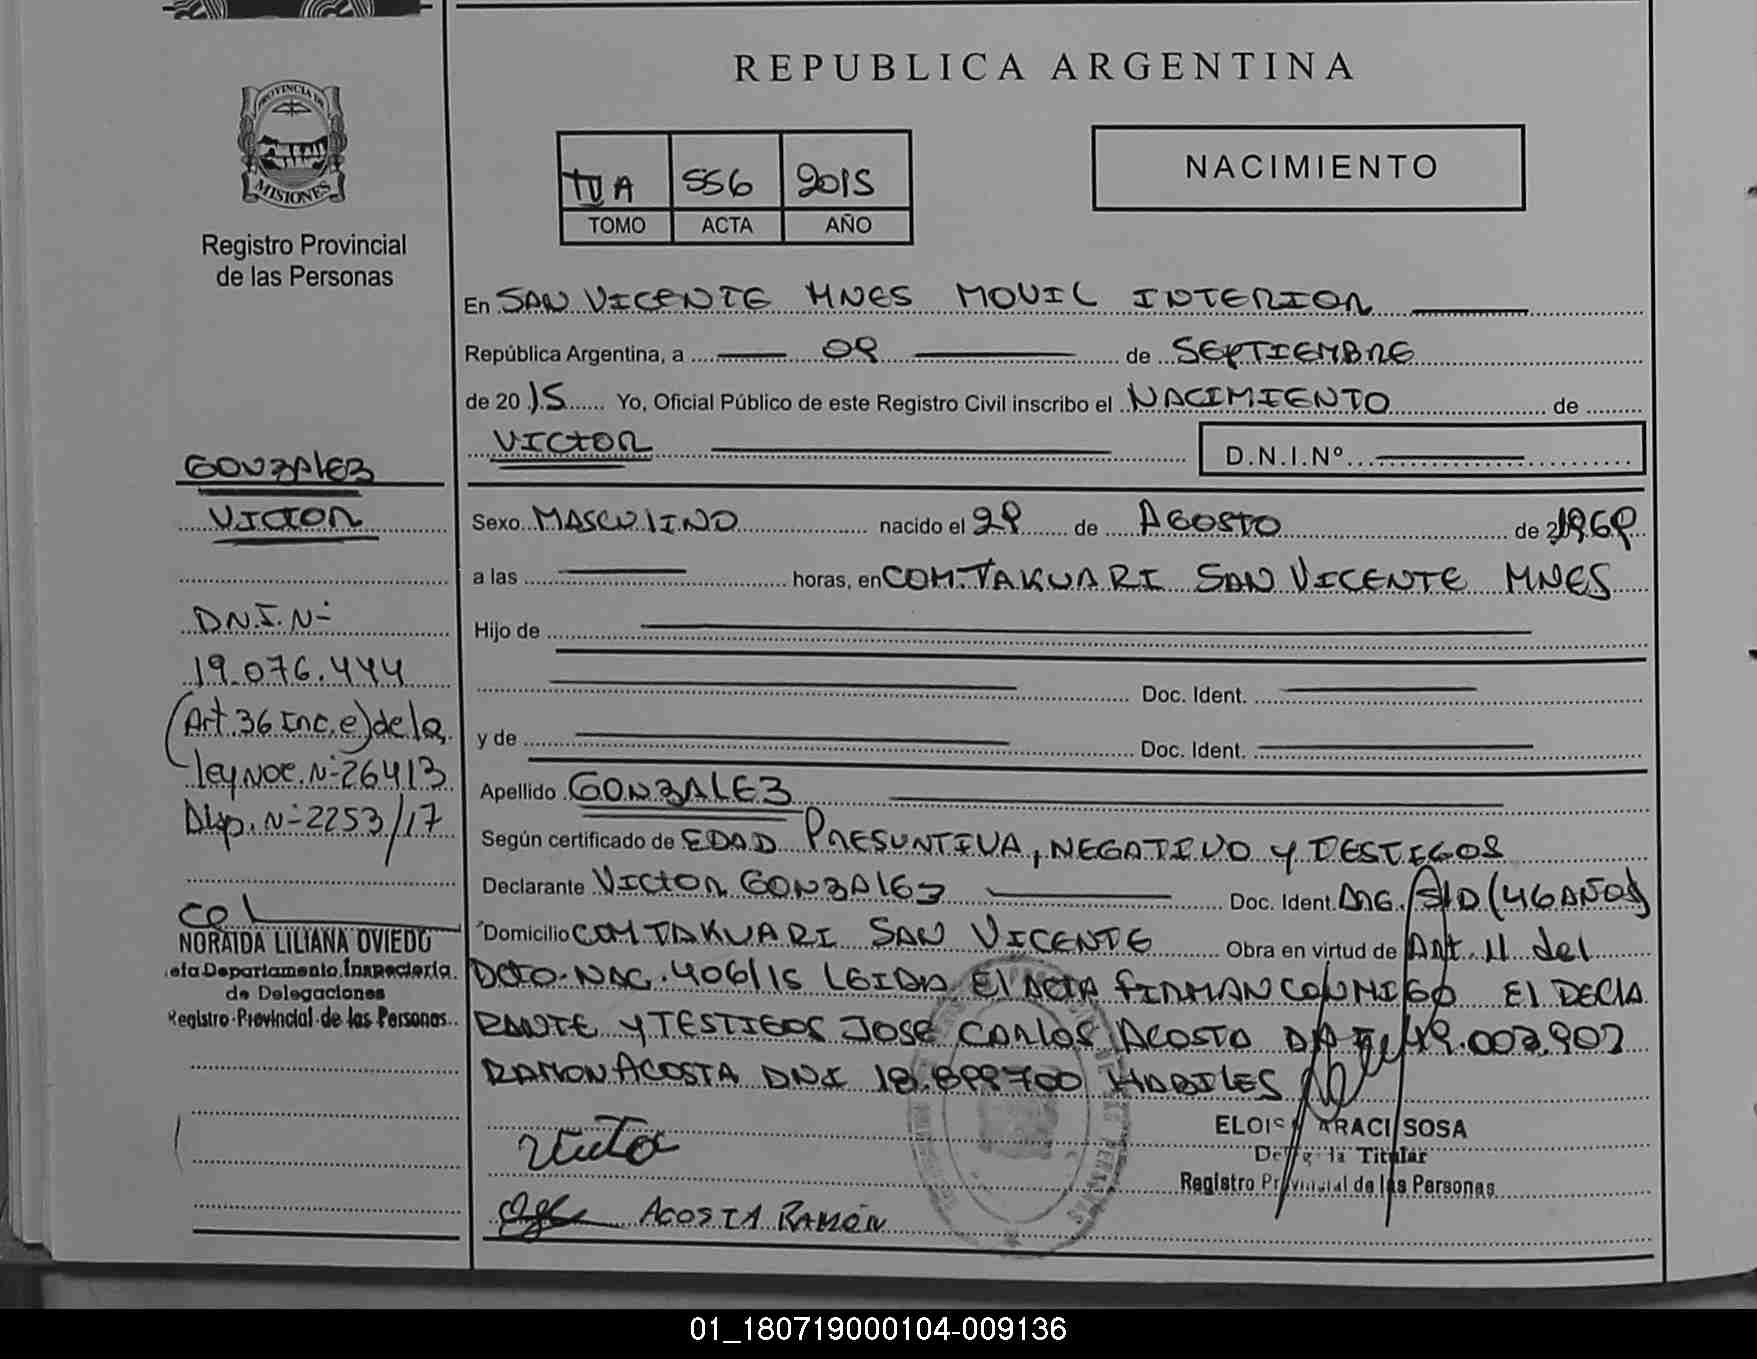 REPUBLICA ARGENTINA
PROVINCIA DE
MISIONES
Registro Provincial
de las Personas
TUA 556 2015
TOMO ACTA AÑO
NACIMIENTO
En SAN VICENTE MNES MOVIL INTERIOR
República Argentina, a 08 de SEPTIEMBRE
de 2015 Yo, Oficial Público de este Registro Civil inscribo el NACIMIENTO de
VICTOR D.N.I.Nº
GONZALEZ
VICTOR
DNI. Nº
19.076.444
(Art. 36 Inc. e) de la
ley NOC. Nº 26413
Disp. Nº 2253/17
NORAIDA LILIANA OVIEDO
Jefa Departamento Inspectoría
de Delegaciones
Registro Provincial de las Personas
Sexo MASCULINO nacido el 28 de AGOSTO de 1968
a las horas, en COM. TAKUARI SAN VICENTE MNES
Hijo de
Doc. Ident.
y de Doc. Ident.
Apellido GONZALEZ
Según certificado de EDAD PRESUNTIVA, NEGATIVO Y TESTIGOS
Declarante VICTOR GONZALEZ Doc. Ident. ARG. S/D (46 AÑOS)
Domicilio COM TAKUARI SAN VICENTE Obra en virtud de Art. 11 del
DCTO. NAC. 406/15 LEIDA El ACTA FIRMAN CONMIGO El DECLA
RANTE Y TESTIGOS JOSE CARLOS ACOSTA DNI 19.003.902
RAMON ACOSTA DNI 18.898700 HABILES
ARACI SOSA
Titular
Registro Provincial de las Personas
Victor
ACOSTA RAMÓN
01_180719000104-009136